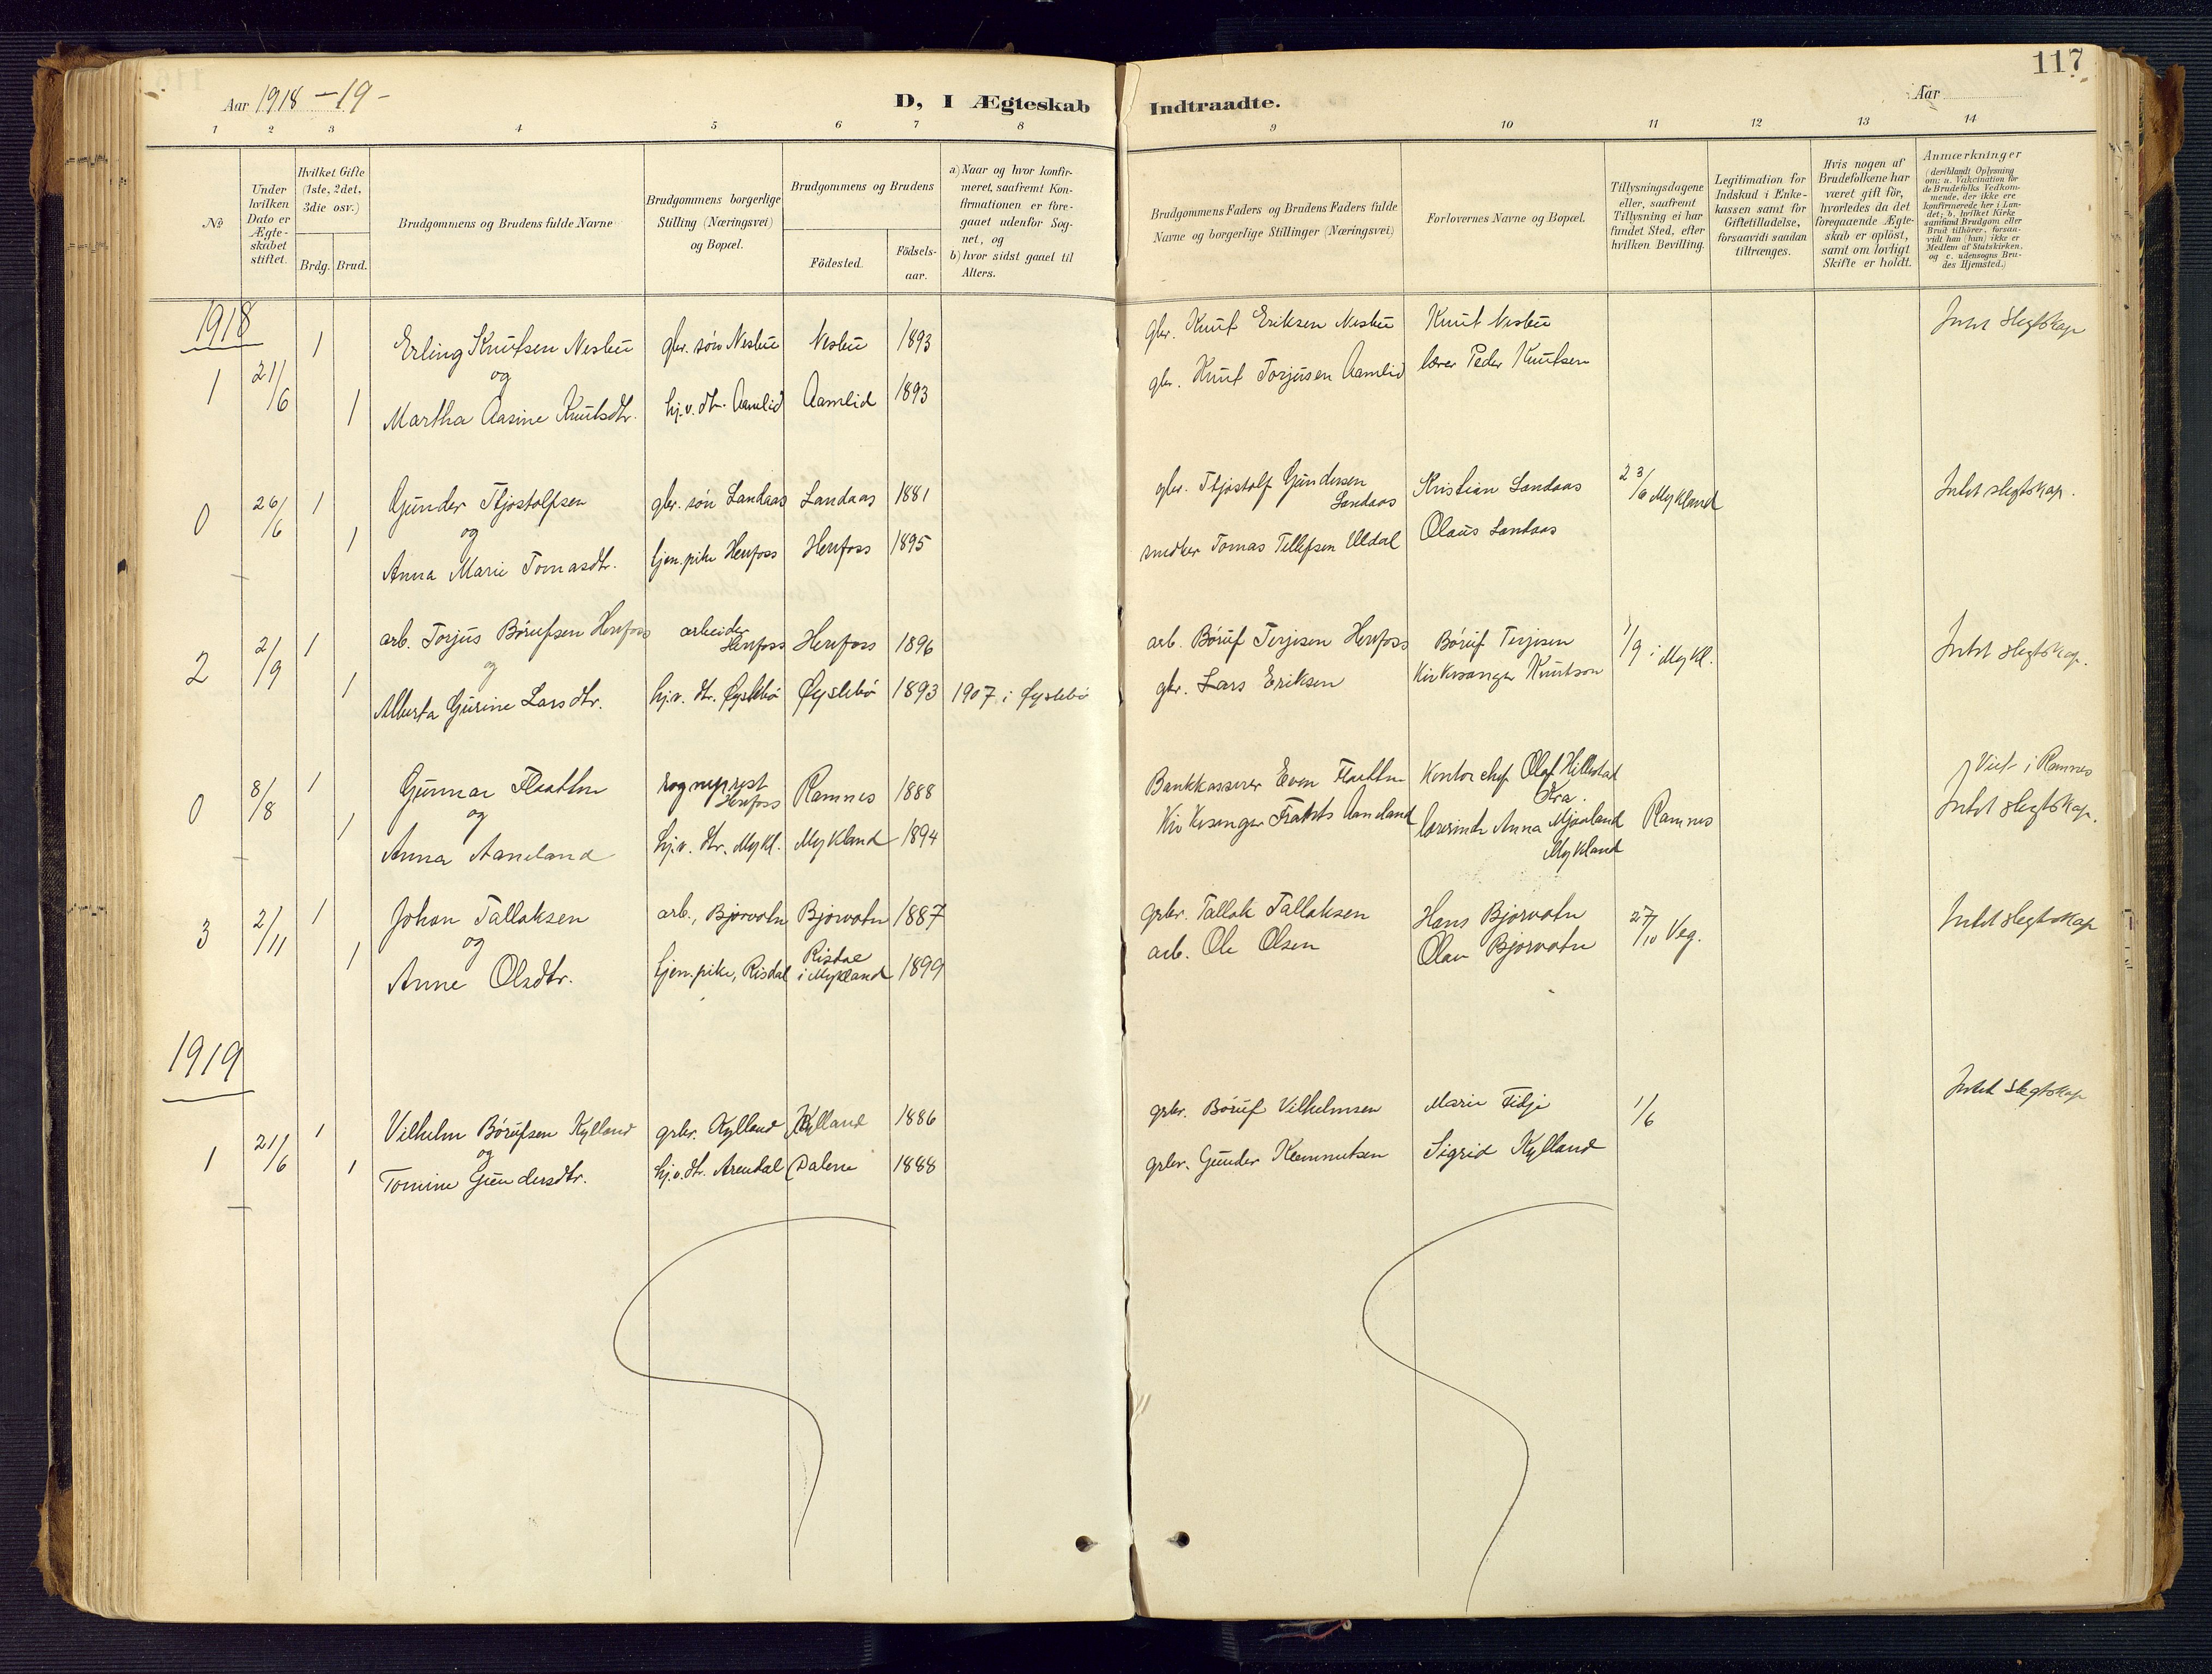 117
Aar 1918 – 19 –
D, I Ægteskab
Indtraadte.
Aar
1 2 3 4 5 6 7 8
9 10 11 12 13 14
No
Under hvilken Dato er Ægteskabet stiftet.
Hvilket Gifte (1ste, 2det, 3die osv.)
Brdg. Brud.
Brudgommens og Brudens fulde Navne
Brudgommens borgerlige Stilling (Næringsvei) og Bopæl.
Brudgommens og Brudens
Födested.
Födsels-aar.
a) Naar og hvor konfirmeret, saafremt Konfirmationen er foregaaet udenfor Sognet, og
b) hvor sidst gaaet til Alters.
Brudgommens Faders og Brudens Faders fulde Navne og borgerlige Stillinger (Næringsvei)
Forlovernes Navne og Bopæl.
Tillysningsdagene eller, saafremt Tillysning ei har fundet Sted, efter hvilken Bevilling.
Legitimation for Indskud i Enkekassen samt for Giftetilladelse, forsaavidt saadan tiltrænges.
Hvis nogen af Brudefolkene har været gift för, hvorledes da det foregaaende Ægteskab er oplöst, samt om lovligt Skifte er holdt.
Anmærkninger (deriblandt Oplysning om: a. Vakcination for de Brudefolks Vedkommende, der ikke ere konfirmerede her i Landet; b. hvilket Kirkesamfund Brudgom eller Brud tilhörer, forsaavidt han (hun) ikke er Medlem af Statskirken, og c. udensogns Brudes Hjemsted.)
1918
1 21/6 1 Erling Knutsen Nesbu gbr. søn Nesbu Nesbu 1893 gbr. Knut Eriksen Nesbu Knut Nesbu Intet slegtskap
og
1 Martha Aasine Knutsdtr. hj.v. dtr. Aamlid Aamlid 1893 gbr. Knut Torjusen Aamlid lærer Peder Knutsen
0 26/6 1 Gunder Tjostolfsen gbr. søn Landaas Landaas 1881 gbr. Tjostolf Gundersen Landaas Kristian Landaas 23/6 Mykland Intet slegtskap.
og
1 Anna Marie Tomasdtr. tjen.pike Herefoss Herefoss 1895 snedker Tomas Tellefsen Uldal Olaus Landaas
2 2/9 1 arb. Torjus Børufsen Herefoss arbeider Herefoss Herefoss 1896 arb. Børuf Terjesen Herefoss Børuf Terjesen 1/9 i Mykl. Intet slegtskap.
og
1 Alberta Gurine Larsdtr. hj.v. dtr. Øyslebø Øyslebø 1893 1907 i Øyslebø gbr. Lars Eriksen Kirkesanger Knutson
0 8/8 1 Gunnar Flaatten sogneprest Herefoss Ramnes 1888 Bankkasserer Even Flaatten Kontorchef Olaf Hillestad Kra. Viet i Ramnes
og
1 Anna Aaneland hj.v. dtr. Mykl. Mykland 1894 Kirkesanger Aaneland lærerinde Anna Mjaaland Mykland Ramnes Intet slegtskap.
3 2/11 1 Johan Tallaksen arb., Bjorvatn Bjorvatn 1887 grbr. Tallak Tallaksen Hans Bjorvatn 27/10 Veg. Intet slegtskap
og
1 Anne Olsdtr. tjen.pike, Risdal Risdal i Mykland 1899 arb. Ole Olsen Olav Bjorvatn
1919
1 21/6 1 Vilhelm Børufsen Kylland grbr. Kylland Kylland 1886 grbr. Børuf Vilhelmsen Marie Fidje 1/6 Intet slegtskap
og
1 Tomine Gundersdtr. hj.v.dtr. Arendal Dalene 1888 grbr. Gunder Klemmetsen Sigrid Kylland